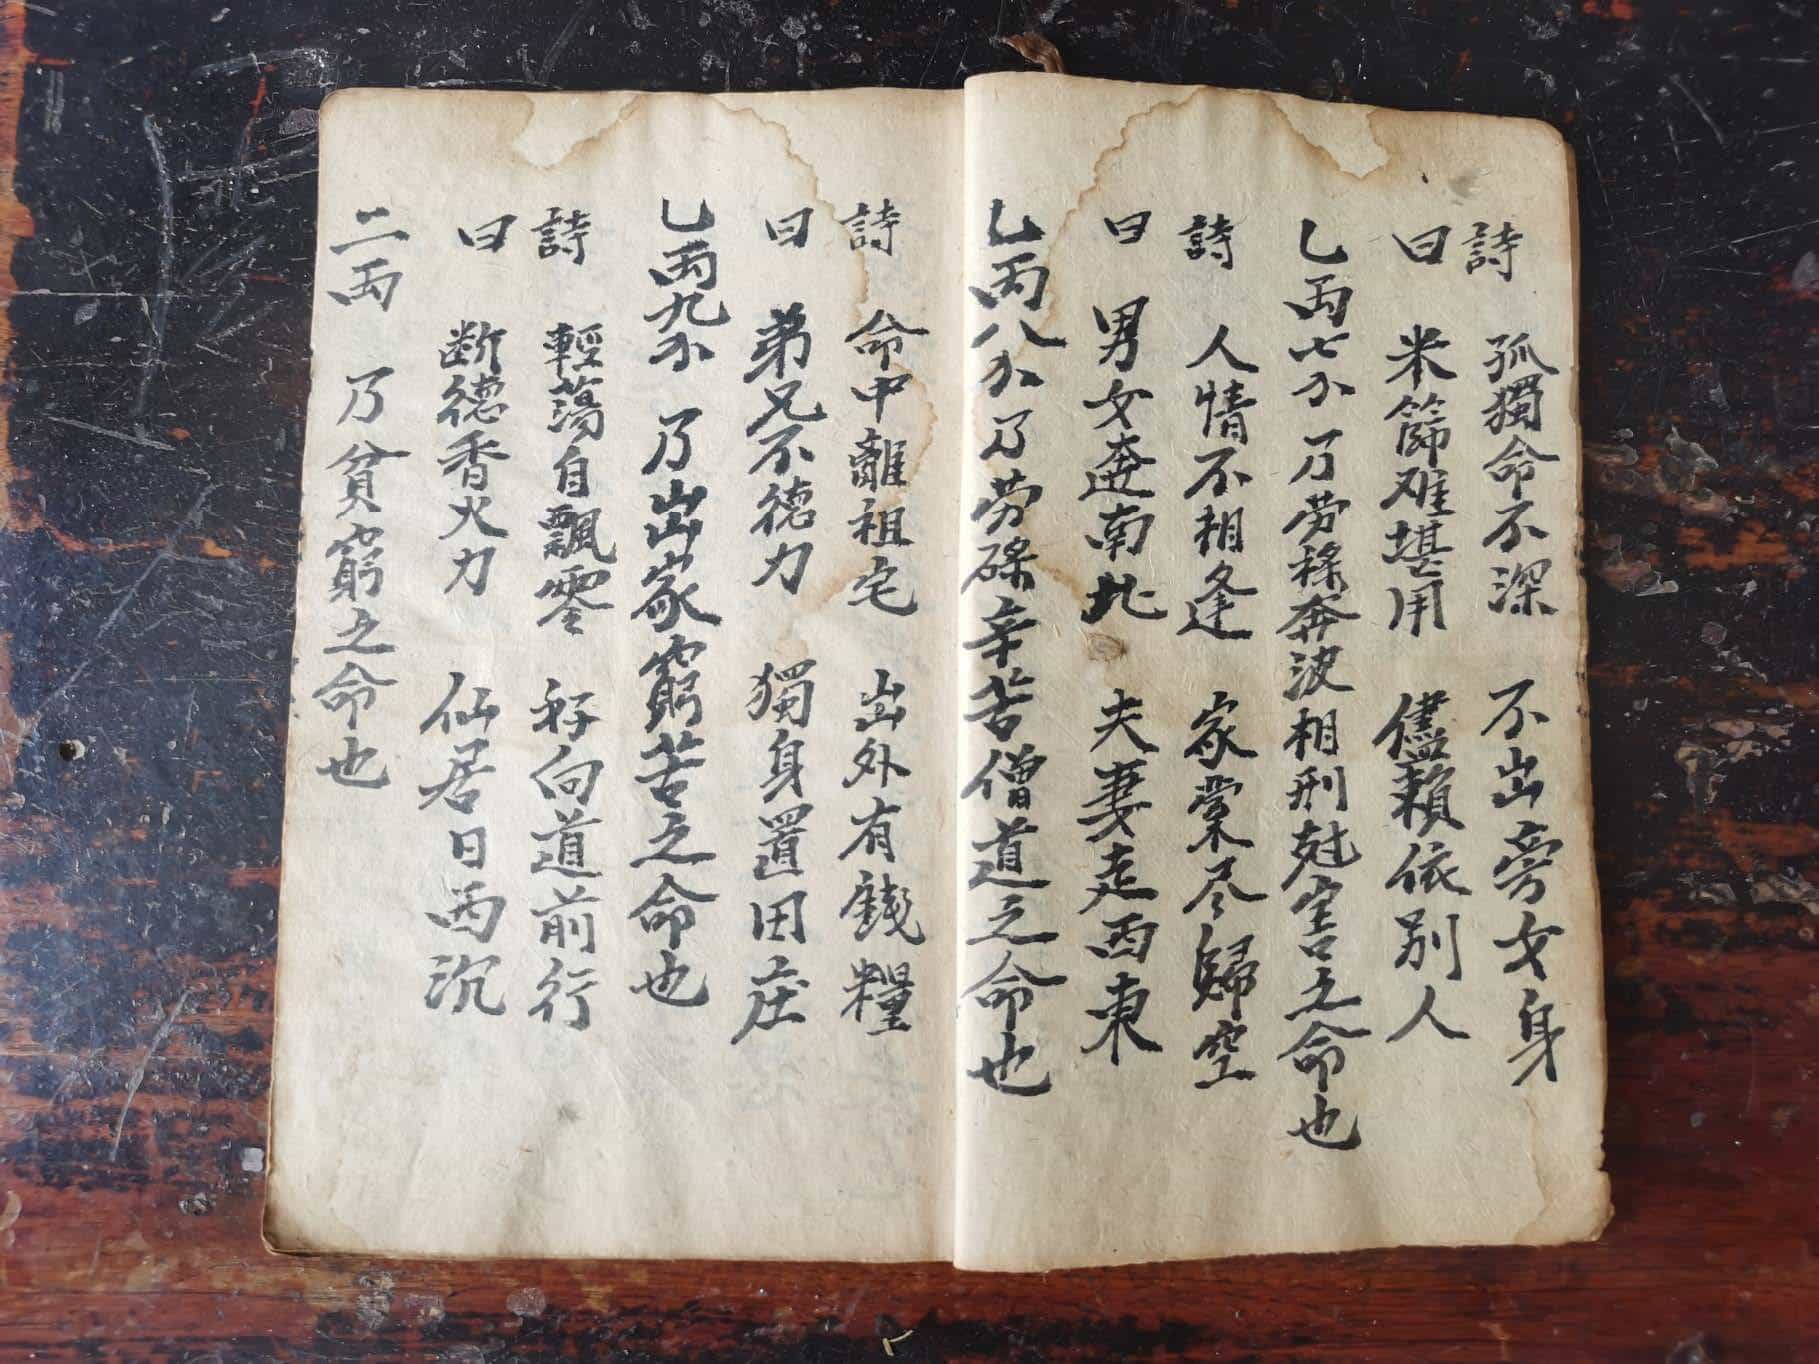 詩 孤獨命不深 不出旁女身
曰 米篩难堪用 儘賴依别人
乙両七分乃劳碌奔波相刑尅害之命也
詩 人情不相逢 家業尽歸空
曰 男女奔南北 夫妻走西東
乙両八分乃劳碌辛苦僧道之命也
詩 命中離祖宅 出外有錢糧
曰 弟兄不德力 獨身置田庄
乙両九分 乃出家窮苦之命也
詩 輕蕩自飄零 好向道前行
曰 断德香火力 仙居日西沉
二両 乃貧窮之命也